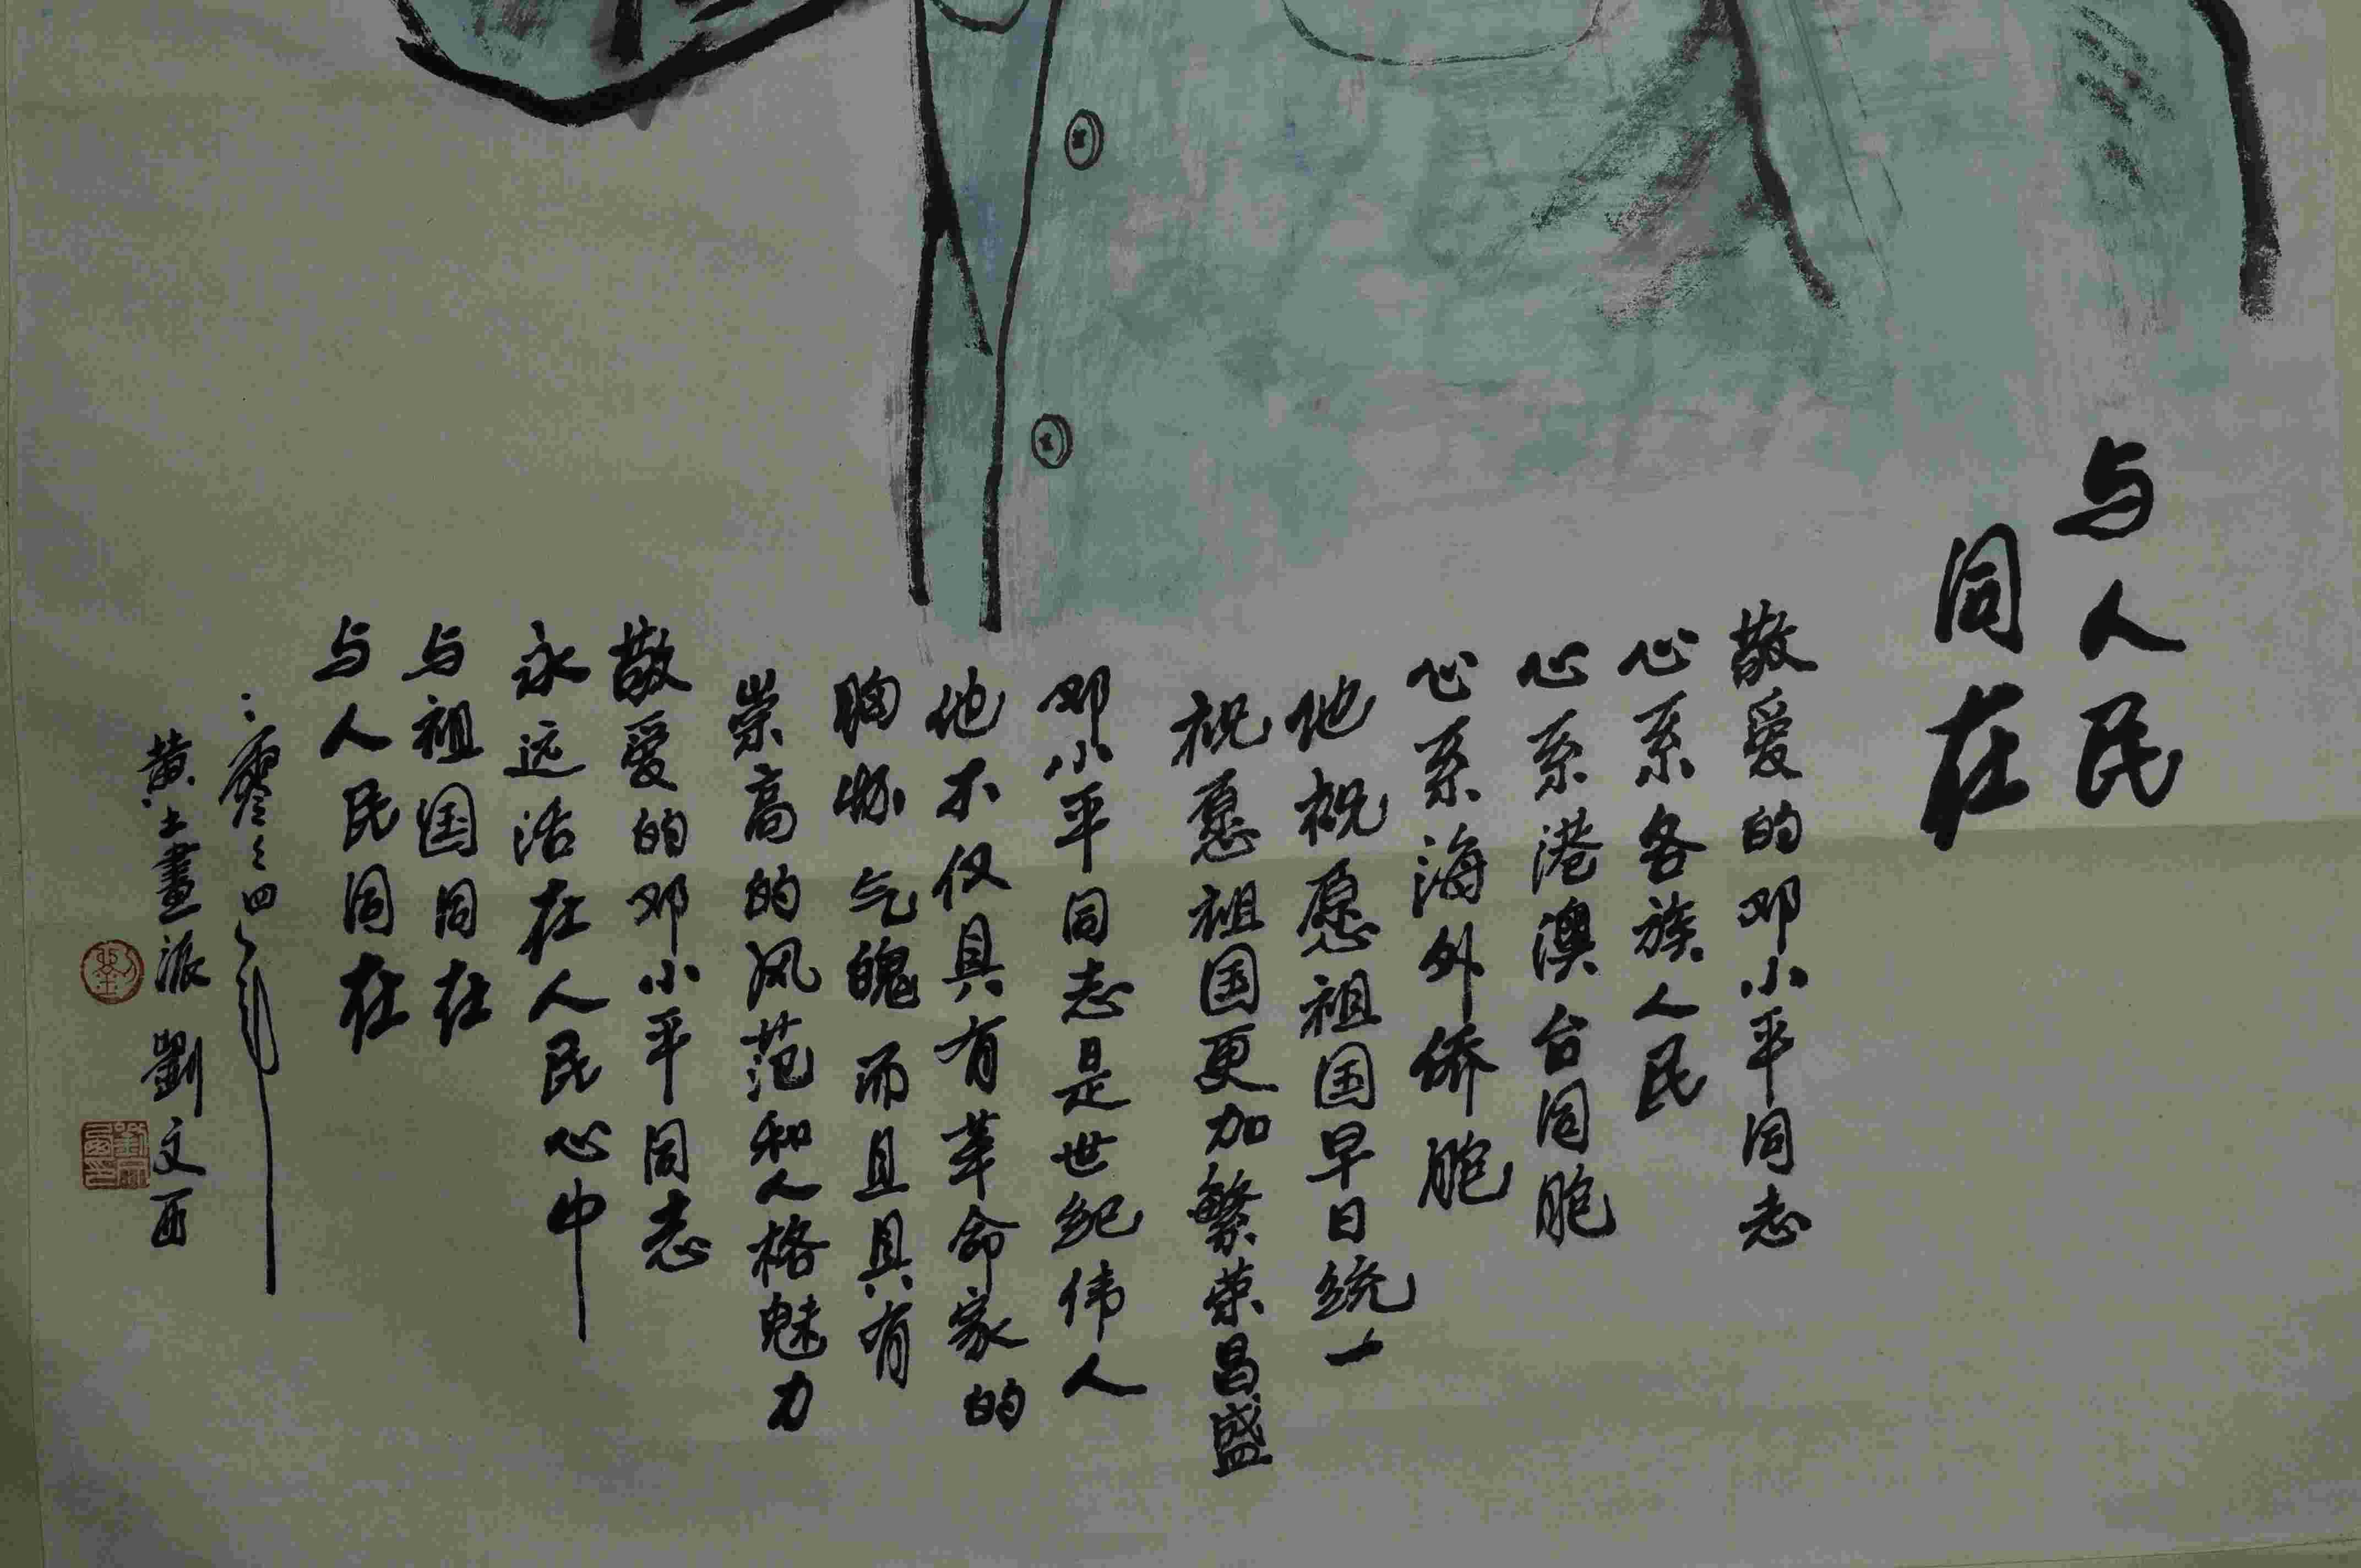 与人民
同在
敬爱的邓小平同志
心系各族人民
心系港澳台同胞
心系海外侨胞
他祝愿祖国早日统一
祝愿祖国更加繁荣昌盛
邓小平同志是世纪伟人
他不仅具有革命家的
胸怀气魄而且具有
崇高的风范和人格魅力
敬爱的邓小平同志
永远活在人民心中
与祖国同在
与人民同在
二零零四年
黄土畫派劉文西